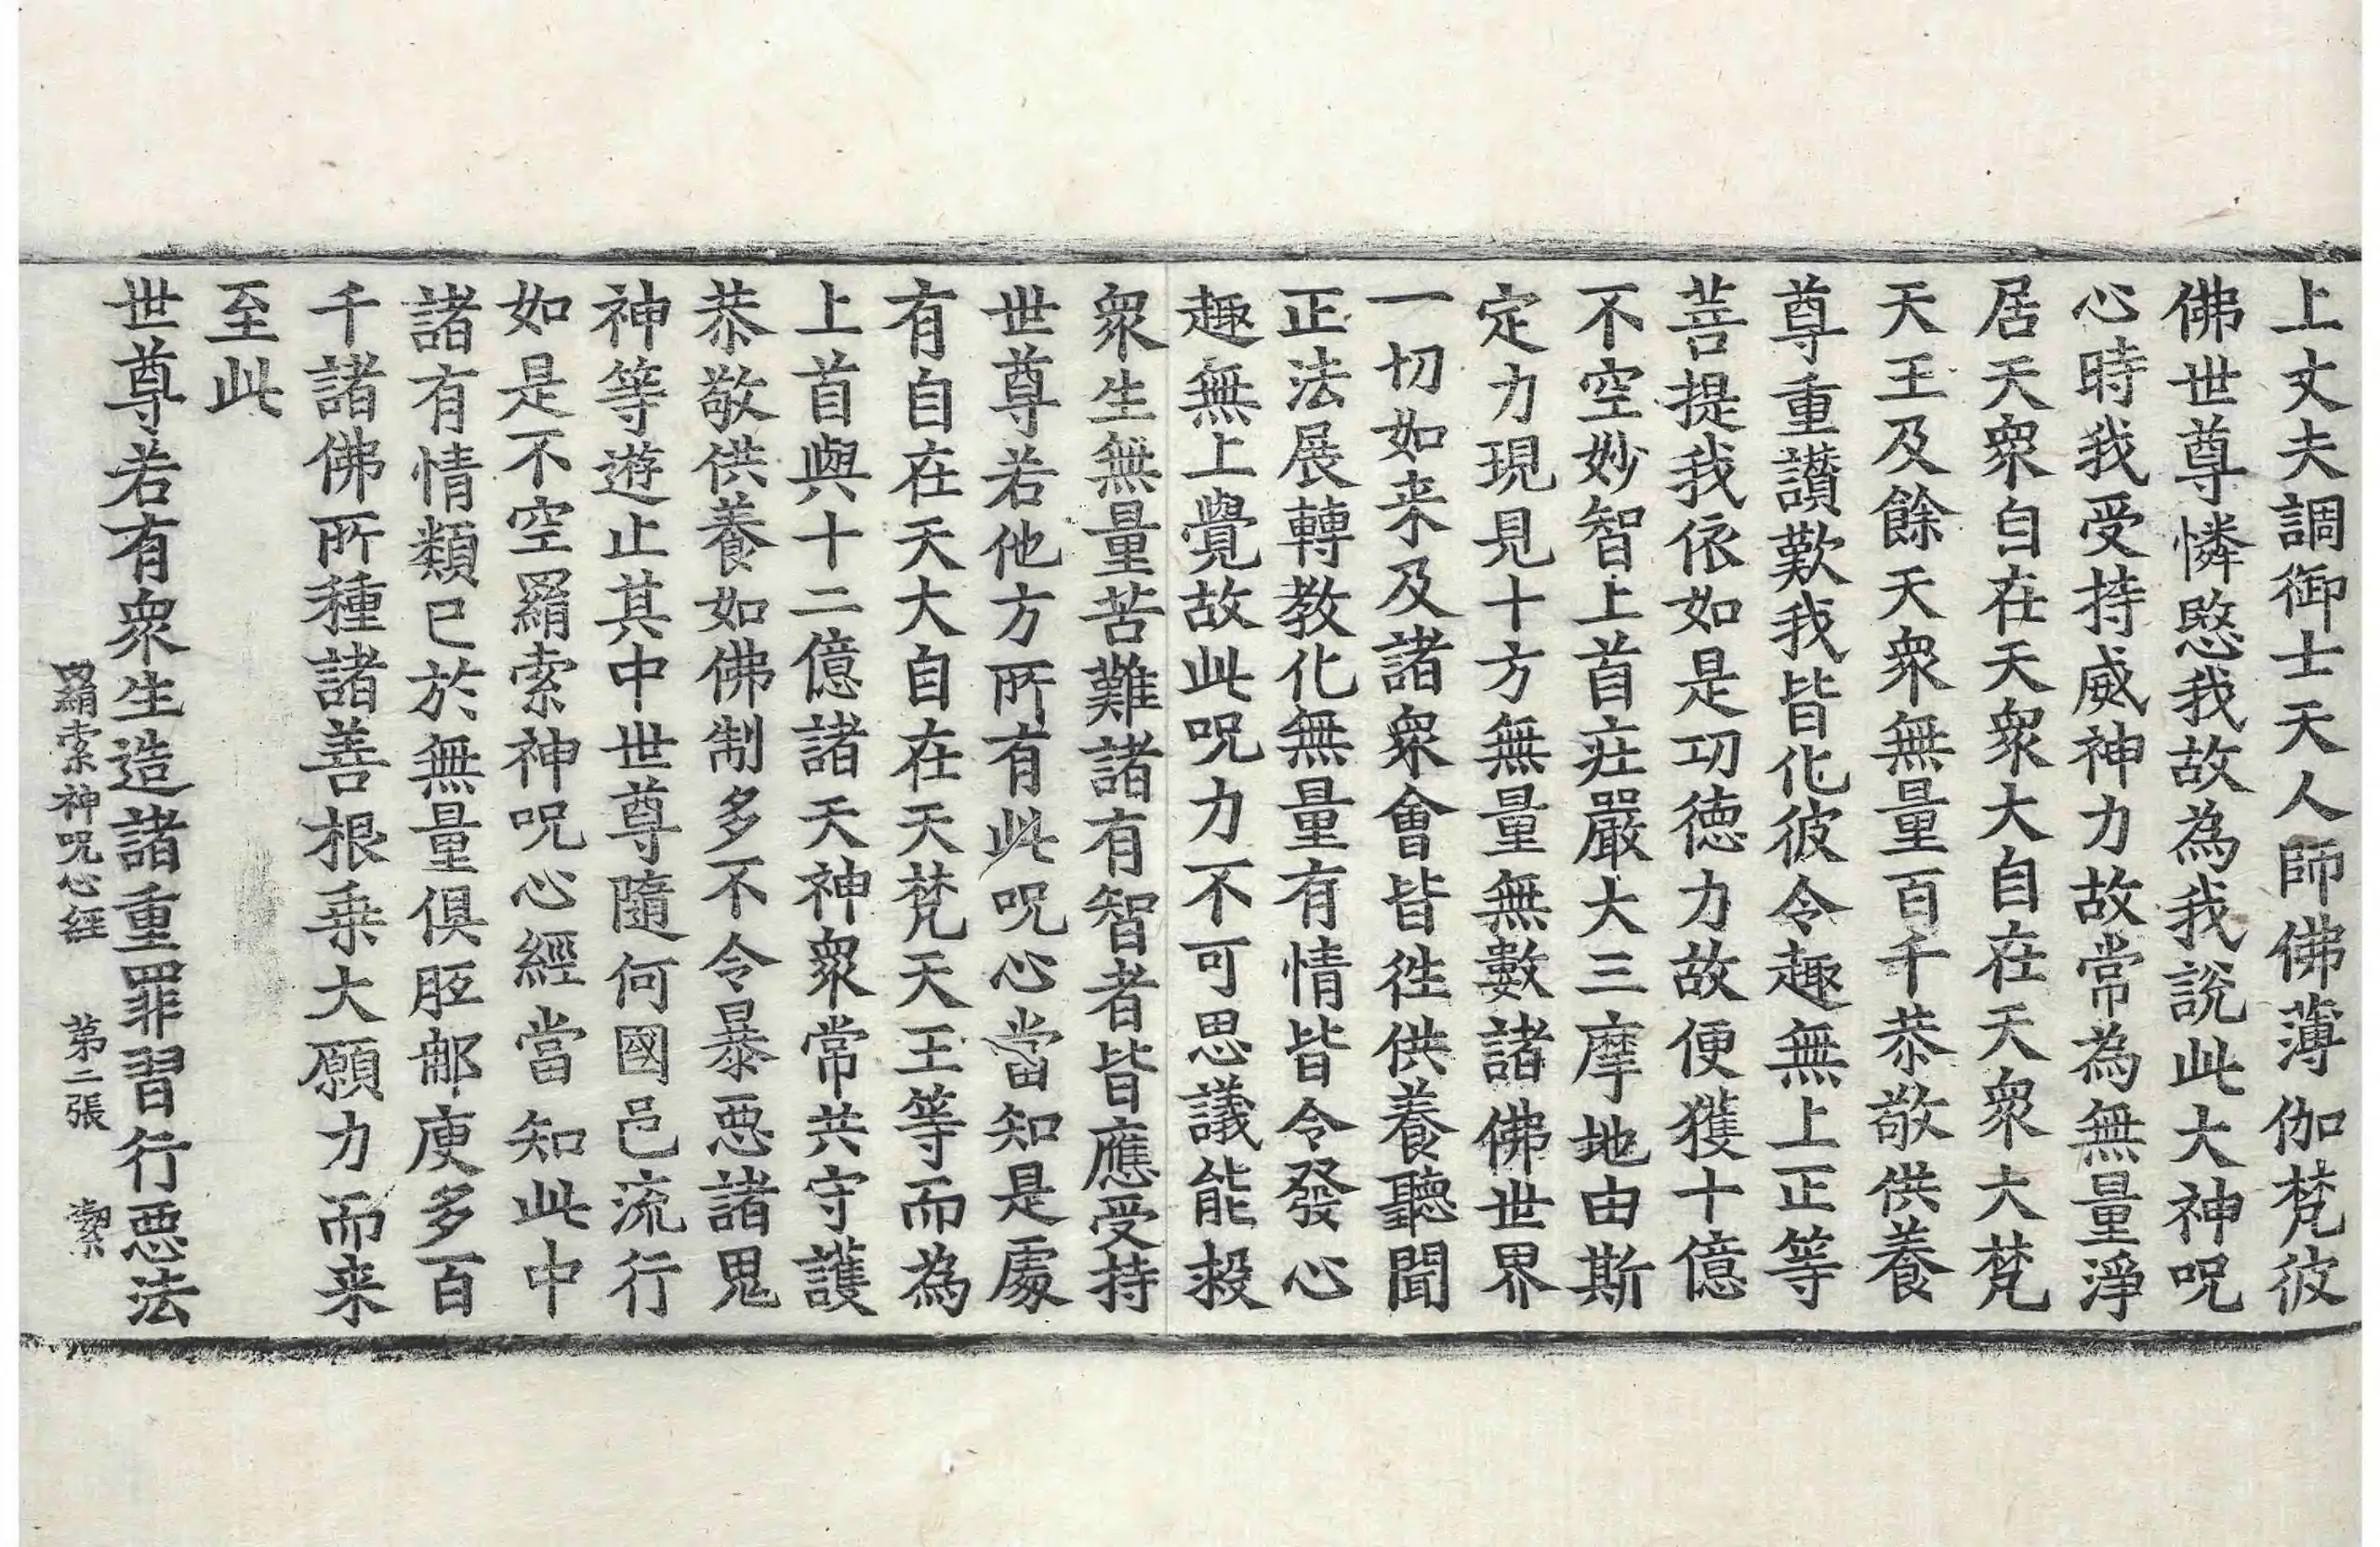 上丈夫調御士天人師佛薄伽梵彼
佛世尊憐愍我故為我說此大神呪
心時我受持威神力故常為無量淨
居天衆自在天衆大自在天衆大梵
天王及餘天衆無量百千恭敬供養
尊重讚歎我皆化彼令趣無上正等
菩提我依如是功德力故便獲十億
不空妙智上首莊嚴大三摩地由斯
定力現見十方無量無數諸佛世界
一切如来及諸衆會皆往供養聽聞
正法展轉教化無量有情皆令發心
趣無上覺故此呪力不可思議能救
衆生無量苦難諸有智者皆應受持
世尊若他方所有此呪心當知是處
有自在天大自在天梵天王等而為
上首與十二億諸天神衆常共守護
恭敬供養如佛制多不令暴惡諸鬼
神等遊止其中世尊隨何國邑流行
如是不空羂索神呪心經當知此中
諸有情類已於無量俱胝那庾多百
千諸佛所種諸善根乗大願力而来
至此
世尊若有衆生造諸重罪習行惡法
羂索神呪心經 第二張 絜